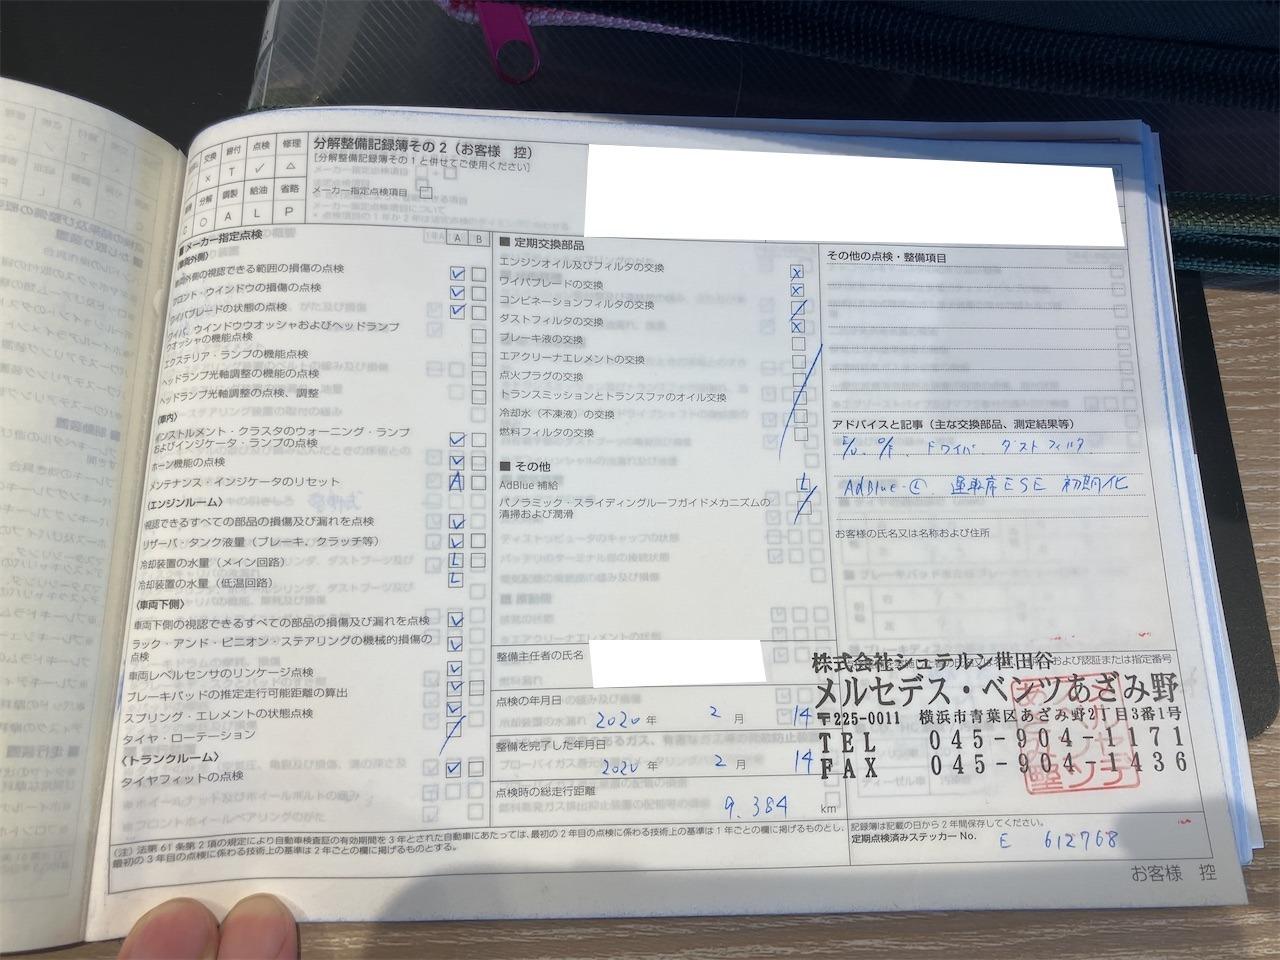 分解整備記録簿その2（お客様 控）
[分解整備記録簿その1と併せてご使用ください]
メーカー指定点検項目 □
交換 締付 点検 修理
× T ✓ △
分解 調整 給油 省略
○ A L P
■ メーカー指定点検
1年A A B
車両外側の視認できる範囲の損傷の点検
フロント・ウインドウの損傷の点検
ワイパブレードの状態の点検
ワイパ、ウインドウウオッシャおよびヘッドランプ
ウオッシャの機能点検
エクステリア・ランプの機能点検
ヘッドランプ光軸調整の機能の点検
ヘッドランプ光軸調整の点検、調整
〈車内〉
インストルメント・クラスタのウォーニング・ランプ
およびインジケータ・ランプの点検
ホーン機能の点検
メンテナンス・インジケータのリセット A
〈エンジンルーム〉
視認できるすべての部品の損傷及び漏れを点検
リザーバ・タンク液量（ブレーキ、クラッチ等）
冷却装置の水量（メイン回路） L
冷却装置の水量（低温回路） L
〈車両下側〉
車両下側の視認できるすべての部品の損傷及び漏れを点検
ラック・アンド・ピニオン・ステアリングの機械的損傷の
点検
車両レベルセンサのリンケージ点検
ブレーキパッドの推定走行可能距離の算出
スプリング・エレメントの状態点検
タイヤ・ローテーション
〈トランクルーム〉
タイヤフィットの点検
■ 定期交換部品
エンジンオイル及びフィルタの交換 ×
ワイパブレードの交換 ×
コンビネーションフィルタの交換
ダストフィルタの交換 ×
ブレーキ液の交換
エアクリーナエレメントの交換
点火プラグの交換
トランスミッションとトランスファのオイル交換
冷却水（不凍液）の交換
燃料フィルタの交換
■ その他
AdBlue 補給 L
パノラミック・スライディングルーフガイドメカニズムの
清掃および潤滑
整備主任者の氏名
点検の年月日
2020 年 2 月 14
整備を完了した年月日
2020 年 2 月 14
点検時の総走行距離
9,384 km
その他の点検・整備項目
アドバイスと記事（主な交換部品、測定結果等）
E/O. O/F. ドワイパ. ダストフィルタ
AdBlue-Ⓛ. 運転席ESE 初期化
お客様の氏名又は名称および住所
および認証または指定番号
株式会社シュテルン世田谷
メルセデス・ベンツあざみ野
〒225-0011 横浜市青葉区あざみ野2丁目3番1号
TEL 045-904-1171
FAX 045-904-1436
(注) 法第61条第2項の規定により自動車検査証の有効期間を3年とされた自動車にあたっては、最初の2年目の点検に係わる技術上の基準は1年ごとの欄に掲げるものとし、
最初の3年目の点検に係わる技術上の基準は2年ごとの欄に掲げるものとする。
記録簿は記載の日から2年間保存してください。
定期点検済みステッカー No. E 612768
お客様 控